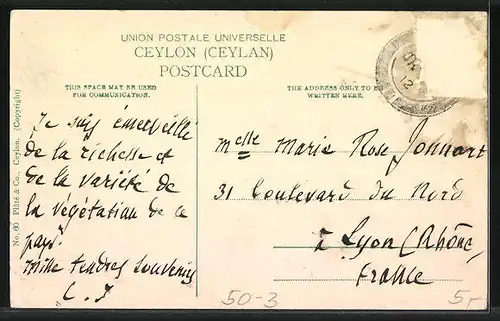 UNION POSTALE UNIVERSELLE
CEYLON (CEYLAN)
POSTCARD
THIS SPACE MAY BE USED
FOR COMMUNICATION.
THE ADDRESS ONLY TO BE
WRITTEN HERE.
No. 60 Plâté & Co., Ceylon. (Copyright)
Je suis émerveillé
de la richesse et
de la variété de
la végétation de ce
pays.
Mille tendres souvenirs
C. J
Melle Marie Rose Jonnart
31 boulevard du Nord
à Lyon (Rhône)
France
50-3